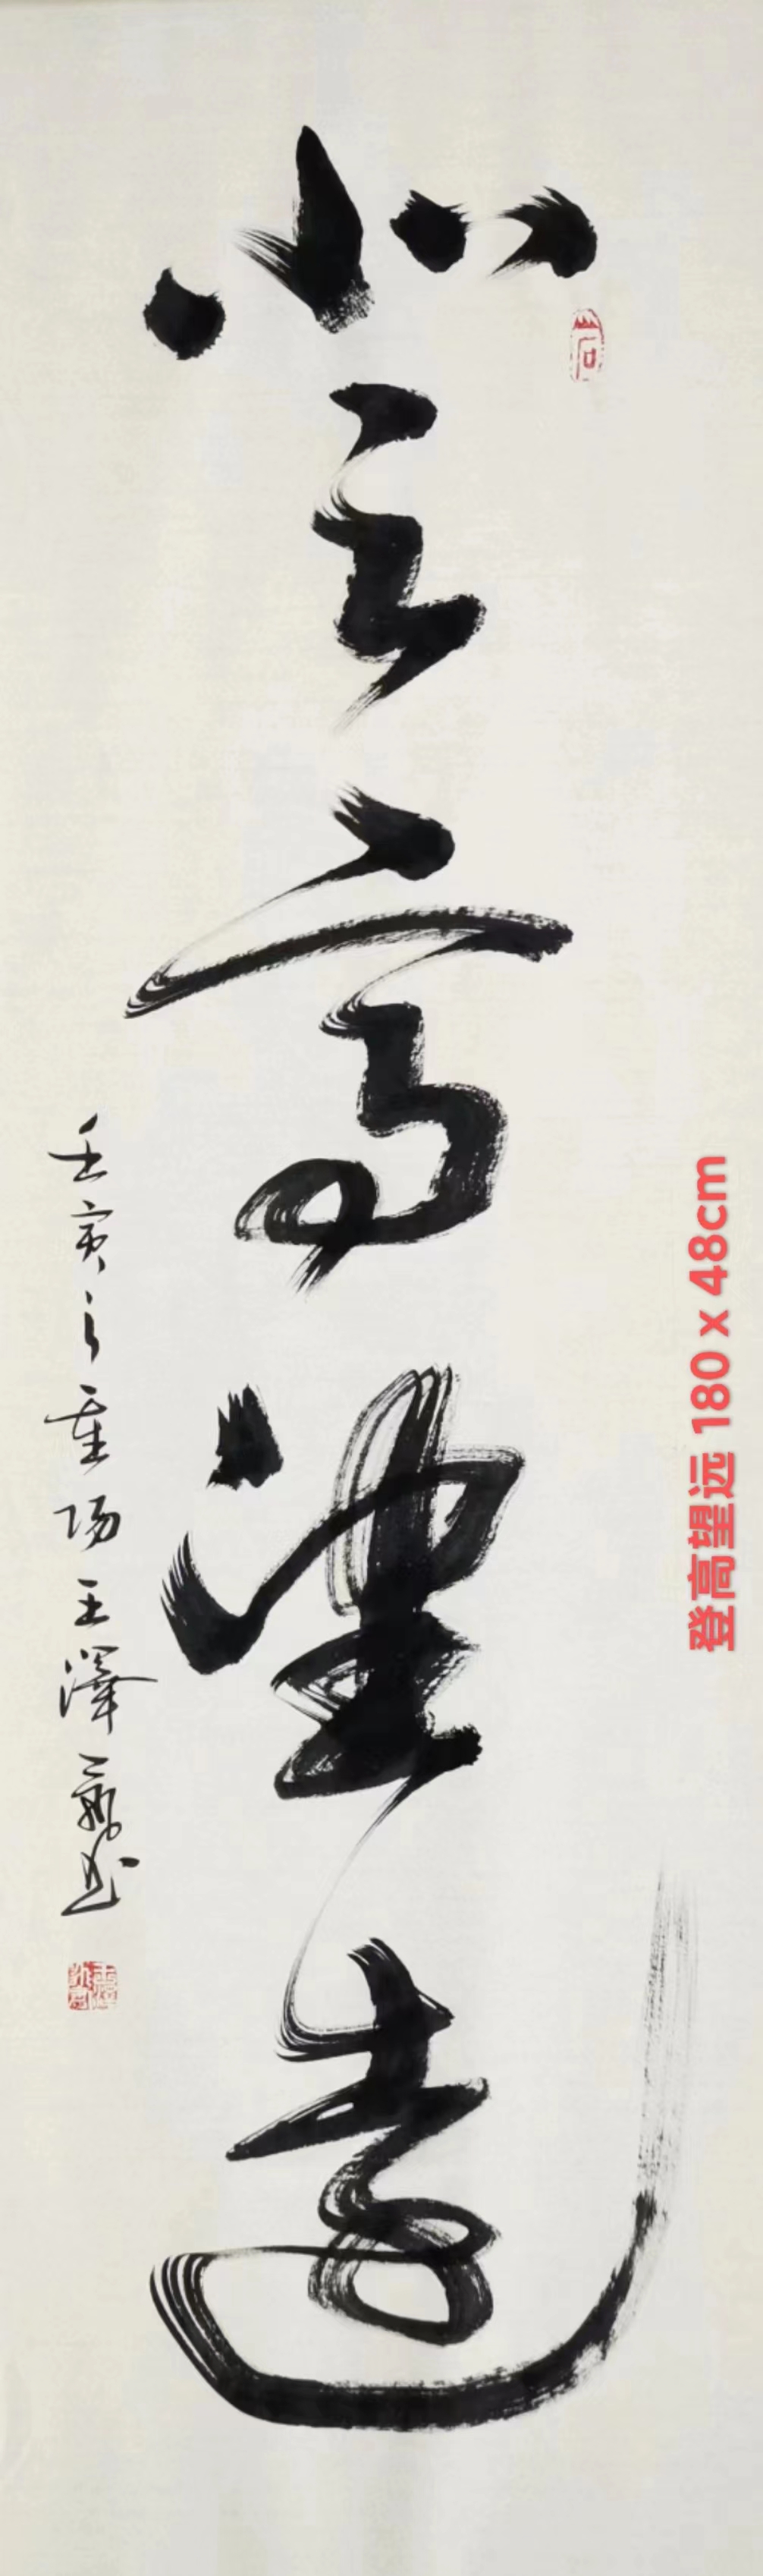 登高望遠
壬寅之重陽王澤新書
登高望远 180 x 48cm